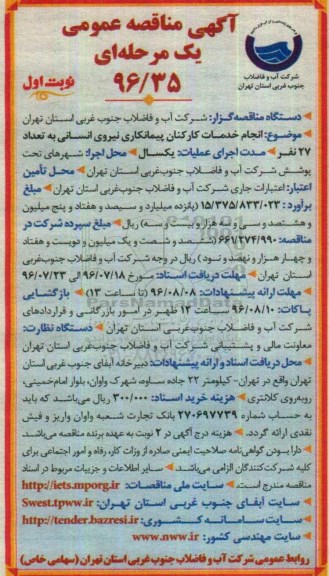 آگهی مناقصه عمومی
یک مرحله‌ای
۹۶/۳۵
نوبت اول
شرکت آب و فاضلاب
جنوب غربی استان تهران
دستگاه مناقصه‌گزار: شرکت آب و فاضلاب جنوب غربی استان تهران
موضوع: انجام خدمات کارکنان پیمانکاری نیروی انسانی به تعداد
۲۷ نفر مدت اجرای عملیات: یکسال محل اجرا: شهرهای تحت
پوشش شرکت آب و فاضلاب جنوب‌غربی استان تهران محل تأمین
اعتبار: اعتبارات جاری شرکت آب و فاضلاب جنوب‌غربی استان تهران مبلغ
برآورد: ۱۵/۳۷۵/۸۳۳/۰۲۳ (پانزده میلیارد و سیصد و هفتاد و پنج میلیون
و هشتصد و سی و سه هزار و بیست و سه) ریال مبلغ سپرده شرکت در
مناقصه: ۶۶۱/۲۷۴/۹۹۰ (ششصد و شصت و یک میلیون و دویست و هفتاد
و چهار هزار و نهصد و نود) ریال در وجه شرکت آب و فاضلاب جنوب‌غربی
استان تهران مهلت دریافت اسناد: مورخ ۹۶/۰۷/۱۸ الی ۹۶/۰۷/۲۳
مهلت ارائه پیشنهادات: ۹۶/۰۸/۰۸ (تا ساعت ۱۳) بازگشایی
پاکات: ۹۶/۰۸/۱۰ ساعت ۱۲ ظهر در امور بازرگانی و قراردادهای
شرکت آب و فاضلاب جنوب‌غربی استان تهران دستگاه نظارت:
معاونت مالی و پشتیبانی شرکت آب و فاضلاب جنوب‌غربی استان تهران
محل دریافت اسناد و ارائه پیشنهادات: دبیرخانه آبفای جنوب غربی استان
تهران واقع در تهران- کیلومتر ۲۲ جاده ساوه، شهرک واوان، بلوار امام‌خمینی،
روبه‌روی کلانتری هزینه خرید اسناد: ۳۰۰/۰۰۰ ریال می‌باشد که باید
به حساب شماره ۲۷۰۶۹۷۷۳۹ بانک تجارت شعبه واوان واریز و فیش
نقدی ارائه گردد. هزینه درج آگهی در ۲ نوبت به عهده برنده مناقصه می‌باشد.
دارا بودن گواهی‌نامه صلاحیت ایمنی صادره از وزارت کار، رفاه و امور اجتماعی برای
کلیه شرکت‌کنندگان الزامی می‌باشد. سایر اطلاعات و جزییات مربوط در اسناد
مناقصه مندرج است. سایت ملی مناقصات: http://iets.mporg.ir
سایت آبفای جنوب غربی استان تهران: Swest.tpww.ir
سایت سامانه کشوری: http://tender.bazresi.ir
سایت مهندسی کشور: www.nww.ir
روابط عمومی شرکت آب و فاضلاب جنوب غربی استان تهران (سهامی خاص)